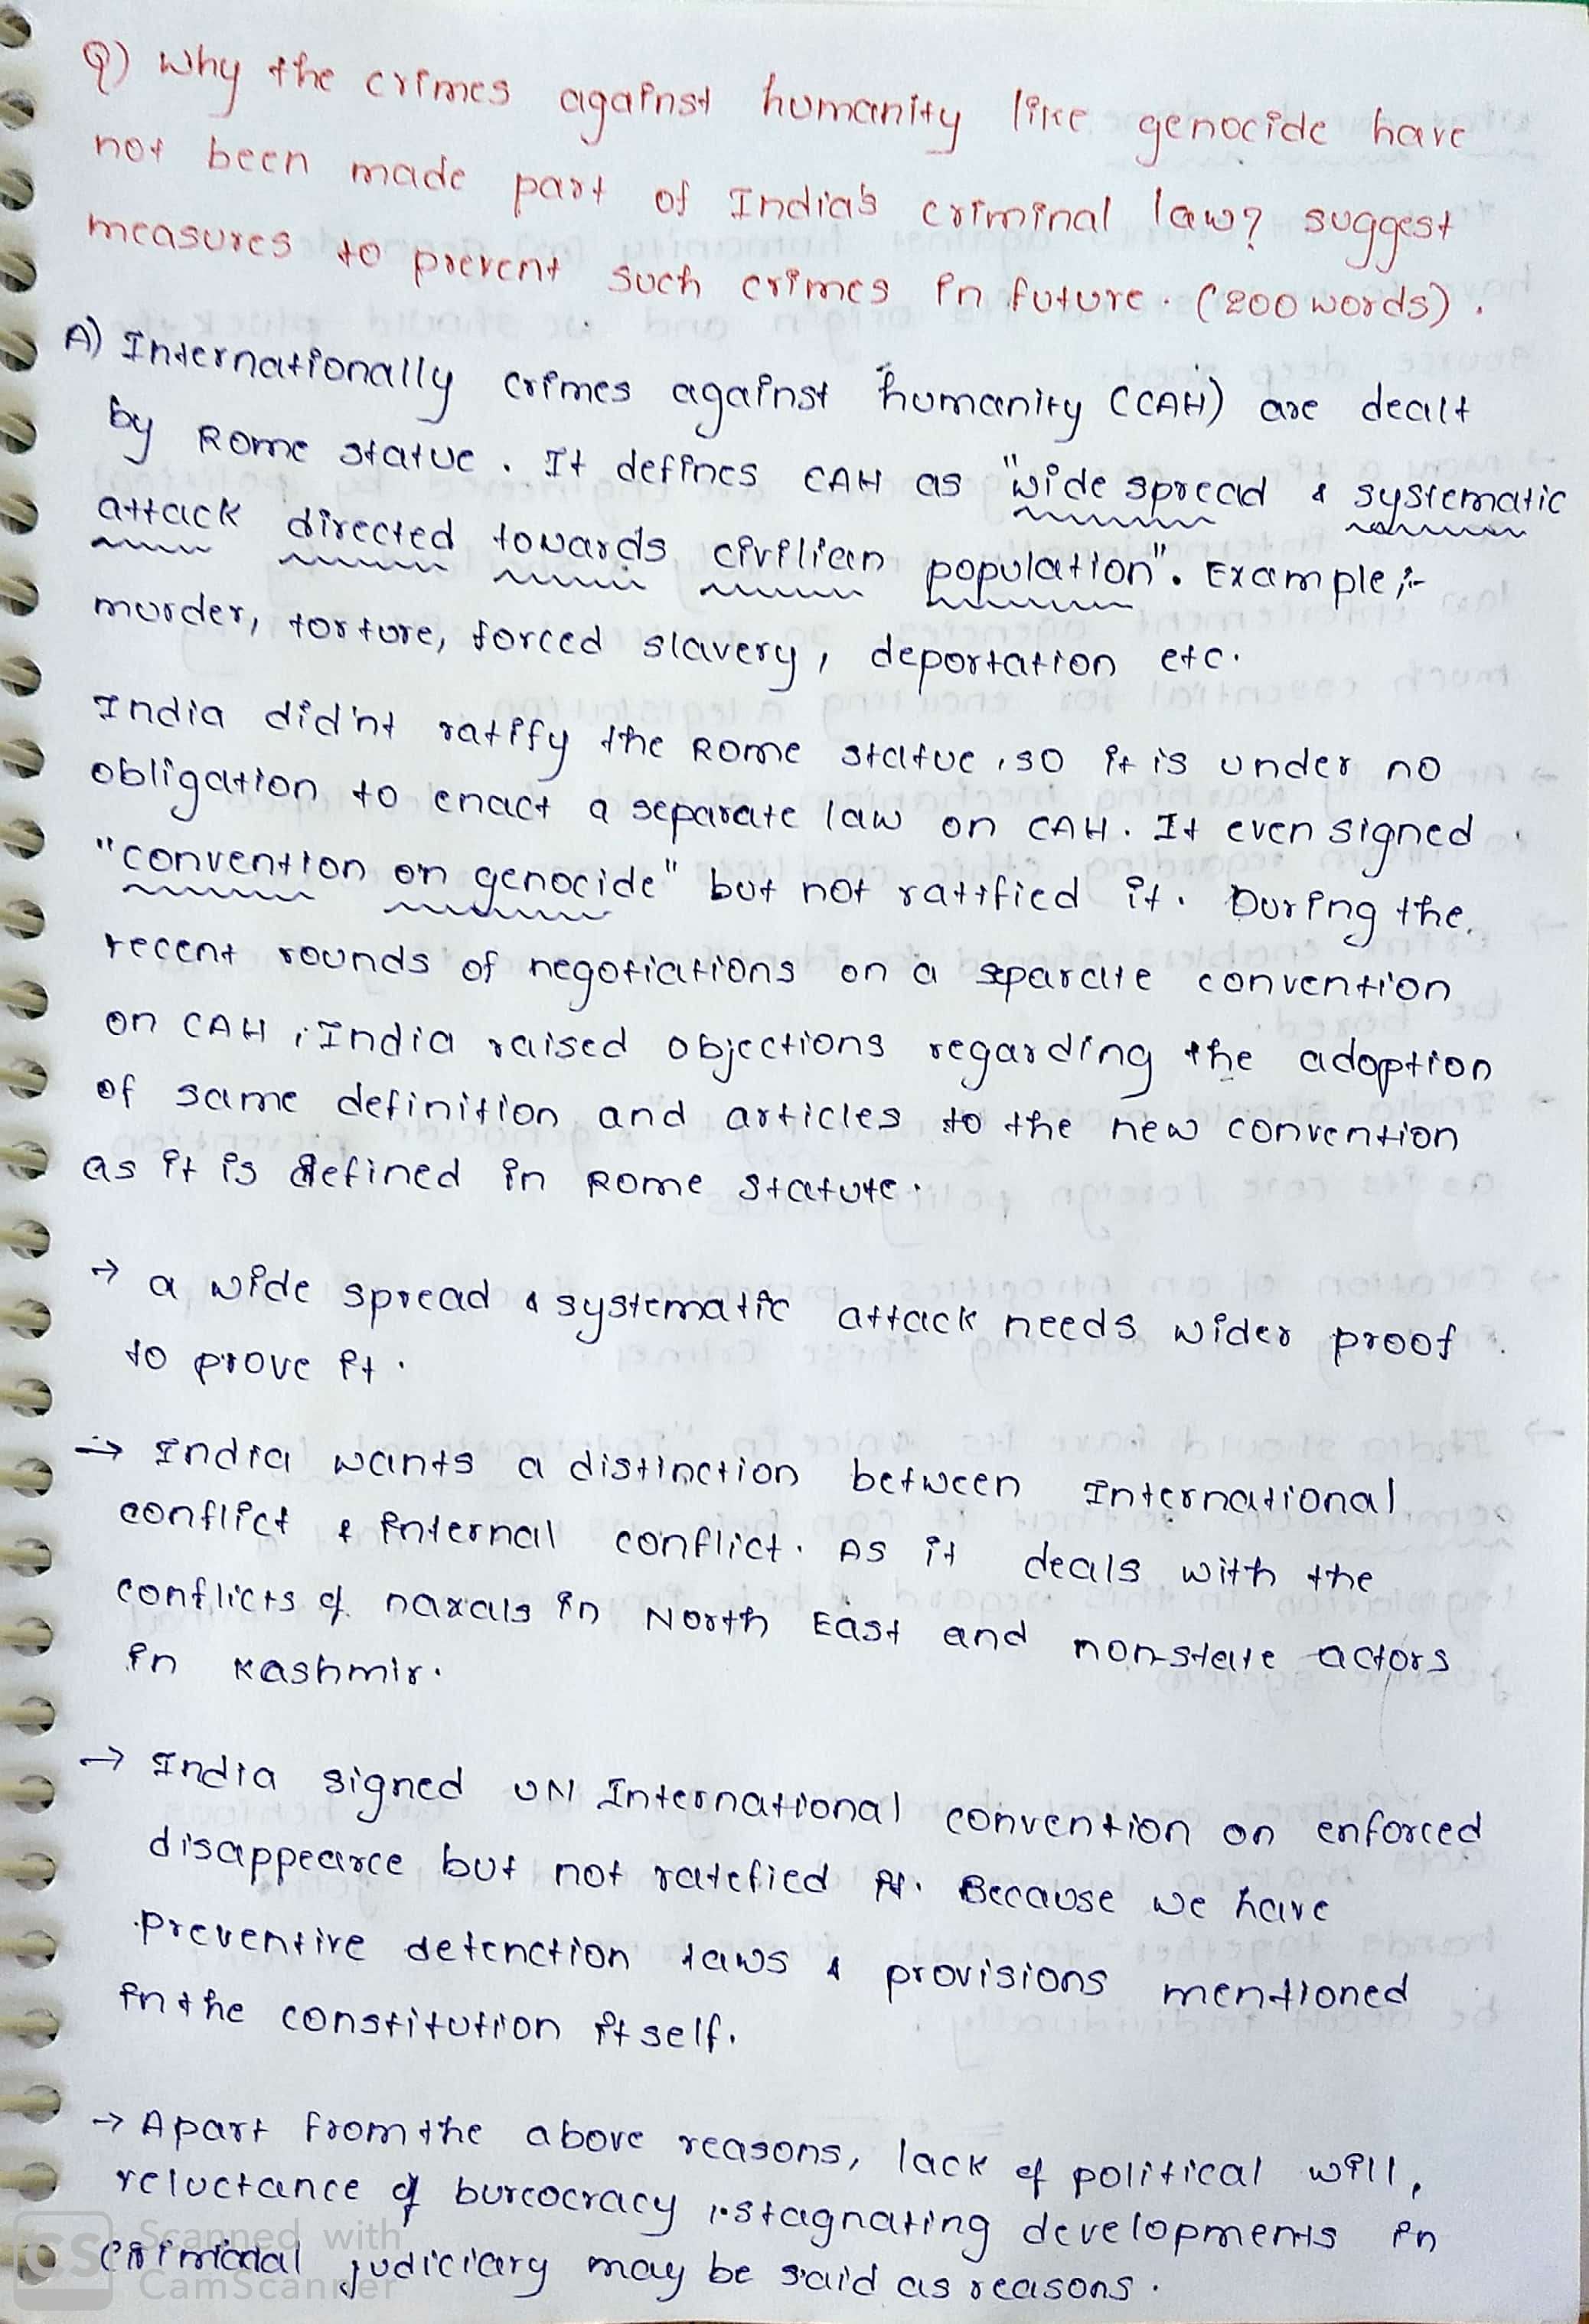 Q) Why the crimes against humanity like genocide have
not been made part of India's criminal law? suggest
measures to prevent such crimes in future. (200 words).
A) Internationally crimes against humanity (CAH) are dealt
by Rome statue. It defines CAH as "wide spread & systematic
attack directed towards civilian population". Example:-
murder, torture, forced slavery, deportation etc.
India did'nt ratify the Rome statue, so it is under no
obligation to enact a separate law on CAH. It even signed
"convention on genocide" but not ratified it. During the
recent rounds of negotiations on a separate convention
on CAH, India raised objections regarding the adoption
of same definition and articles to the new convention
as it is defined in Rome statute.
→ a wide spread & systematic attack needs wider proof
to prove it.
→ India wants a distinction between International
conflict & internal conflict. As it deals with the
conflicts of naxals in North East and non-state actors
in Kashmir.
→ India signed UN International convention on enforced
disappearce but not ratefied it. Because we have
preventive detenction laws & provisions mentioned
in the constitution itself.
→ Apart from the above reasons, lack of political will,
reluctance of burcocracy, stagnating developments in
criminal judiciary may be said as reasons.
CS Scanned with
CamScanner